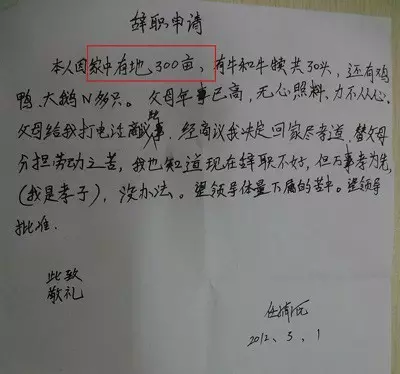 辞职申请
本人因家中有地300亩、有牛和牛犊共30头,还有鸡
鸭、大鹅N多只。父母年事已高,无心照料、力不从心。
父母给我打电话商议事,经商议我决定回家尽孝道、替父母
分担劳动之苦,我也知道现在辞职不好,但万事孝为先,
(我是孝子),没办法。望领导体量下属的苦中。望领导
批准.
此致
敬礼
2012、5、1